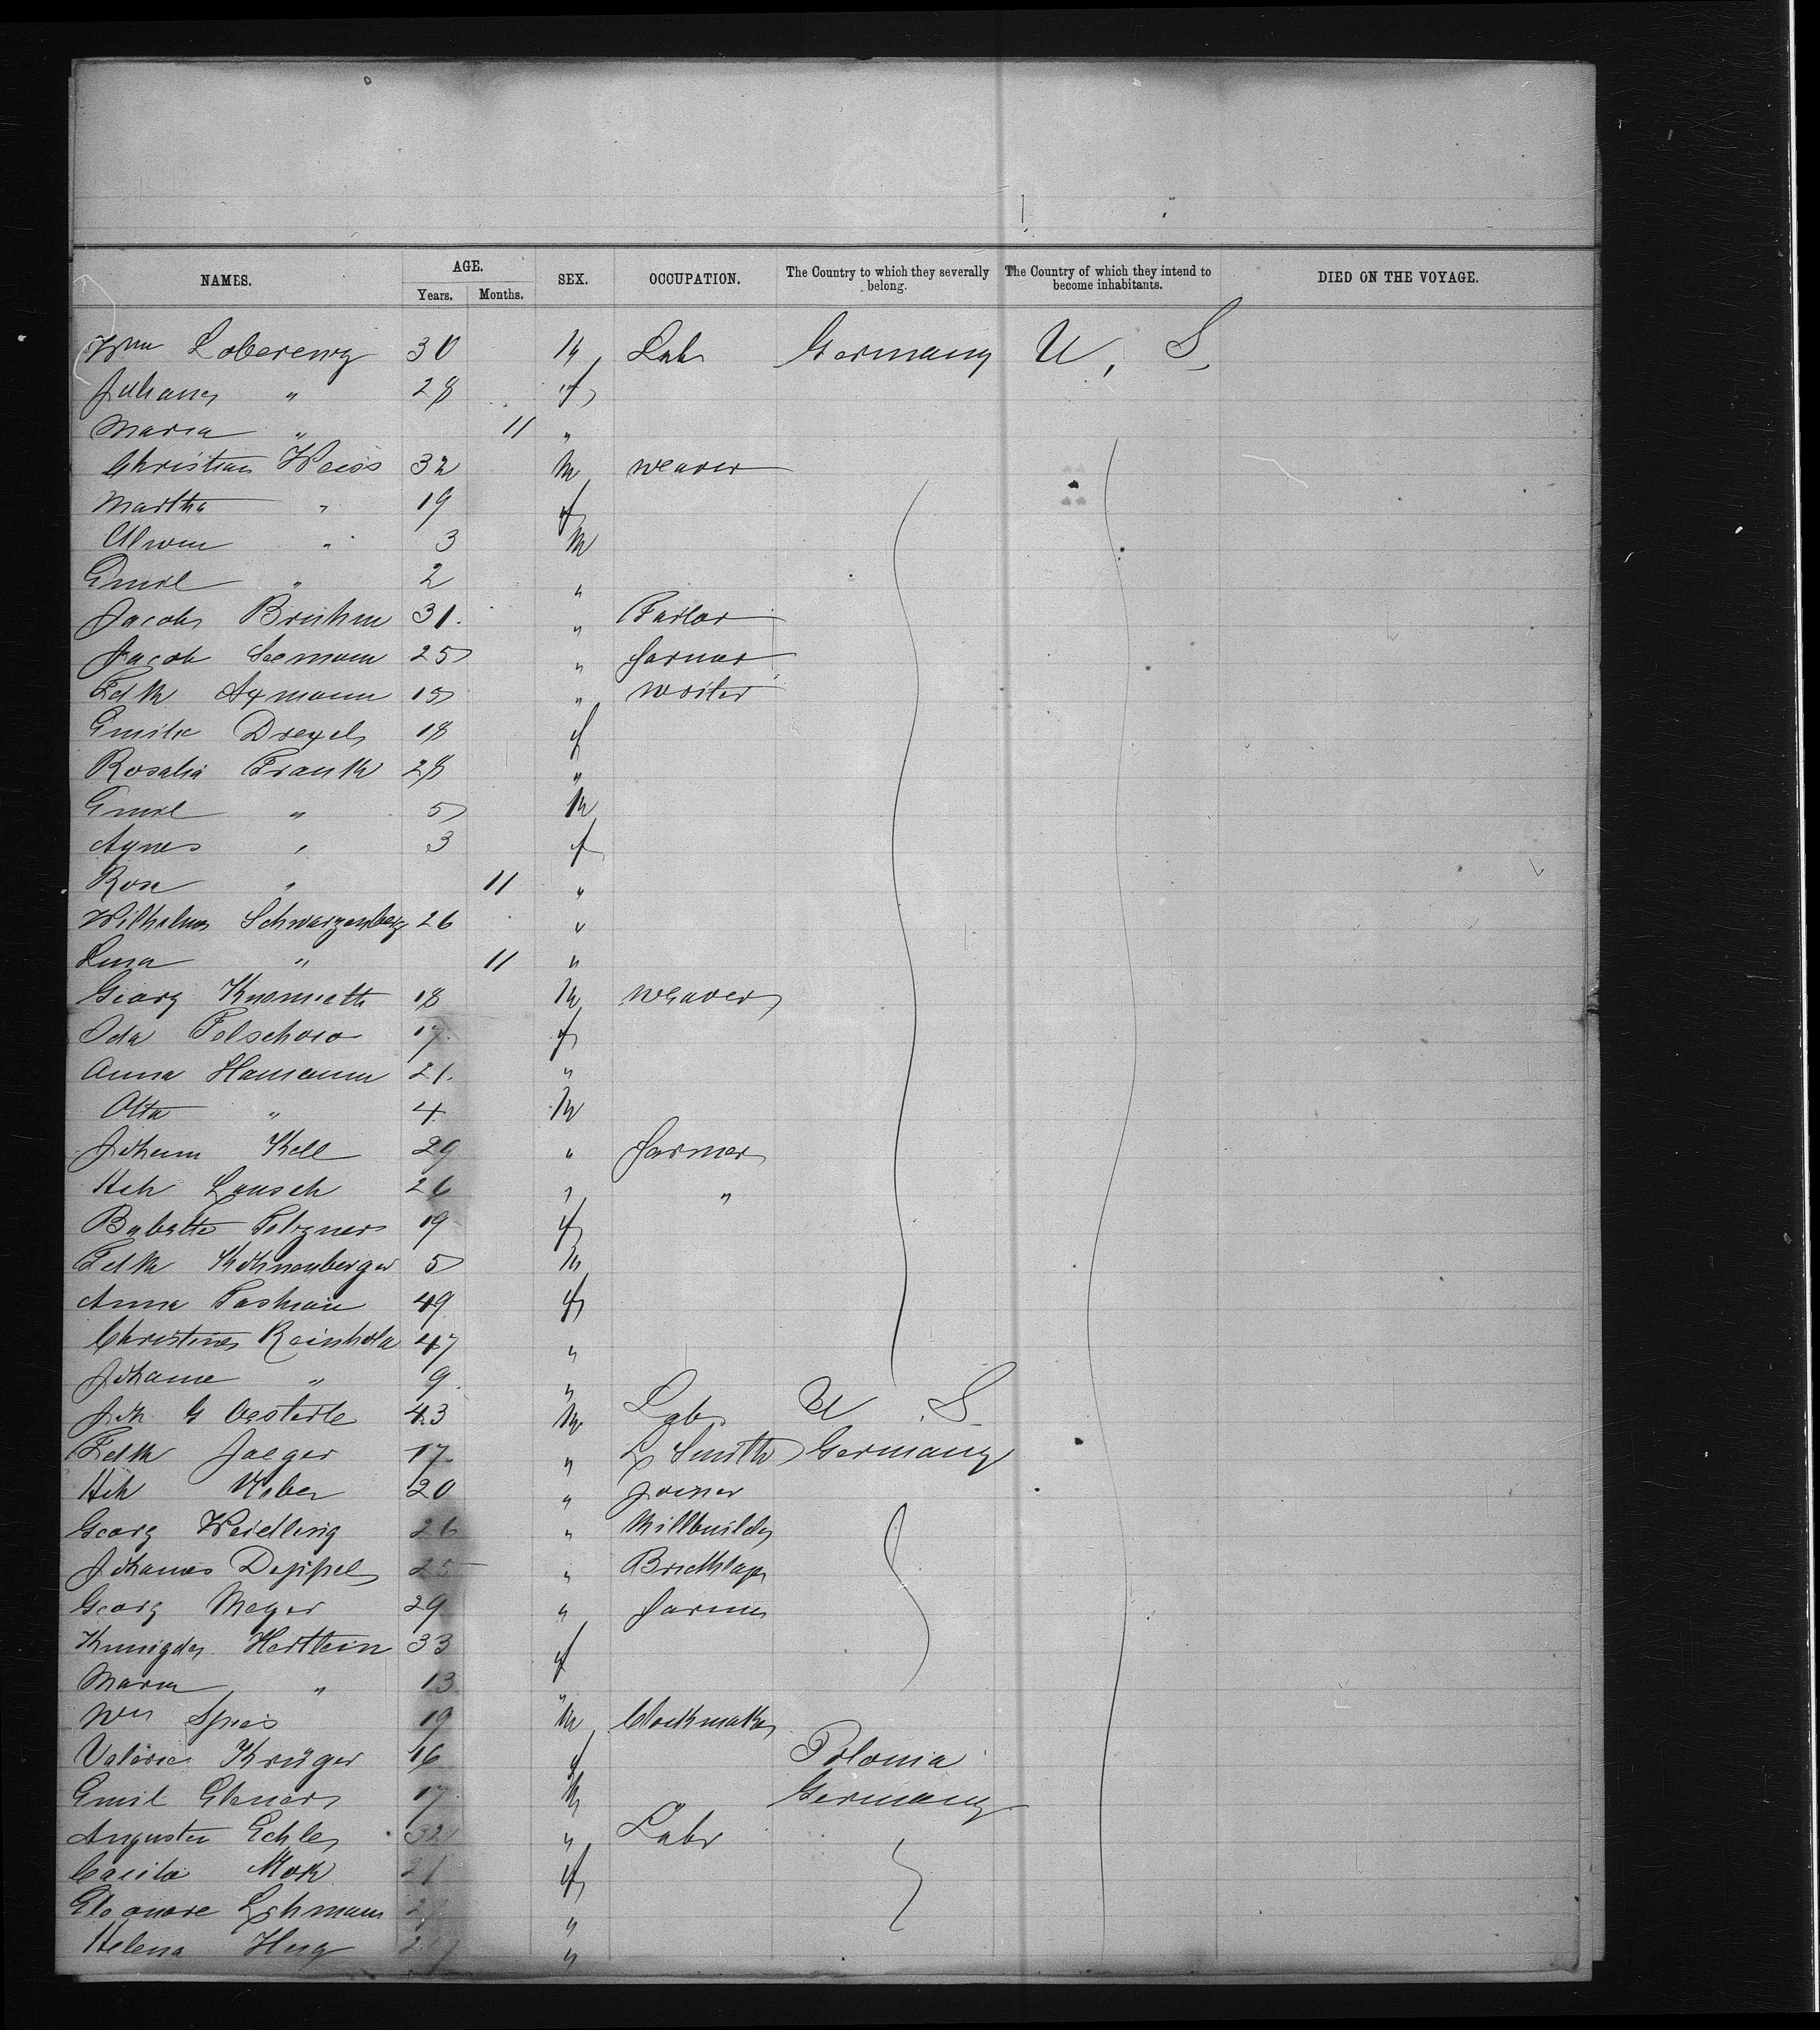 NAMES. AGE. Years. Months. SEX. OCCUPATION. The Country to which they severally belong. The Country of which they intend to become inhabitants. DIED ON THE VOYAGE.
Wm Loberenz 30 M Lab Germany U. S.
Juliana " 28 f
Maria " 11 "
Christian Weiss 32 M weaver
Martha " 19 f
Alwin " 3 M
Emil " 2 "
Jacob Bruhm 31 " Tailor
Jacob Seemann 25 " farmer
Fdk Axmann 15 " writer
Emilie Drexel 18 f
Rosalia Frank 28 "
Emil " 5 M
Agnes " 3 f
Rosa " 11 "
Wilhelm Schwarzenberg 26 "
Lina " 11 "
Georg 18 M weaver
Ida 17 f
Anna Hamann 21 "
Otto " 4 M
Johann Kell 29 " farmer
Hch Lausch 26 " "
Babette 19 f
Fdk Kohnenberger 5 M
Anna 49 f
Christine Reinhold 47 "
Johanne " 9 "
Joh G Oesterle 43 M Lab U S
Fdk Jaeger 17 " L Smith Germany
Hch Weber 20 " Joiner
Georg Weidling 26 " Millbuilder
Johannes Deppel 25 " Bricklayer
Georg Meyer 29 " farmer
Kunigda Hertlein 33 f
Maria " 13 "
Wm Spies 19 M Clockmaker
Valerie Krüger 16 f Polonia
Emil 17 M Germany
Augusten Echle 32 " Labr
Cacilia Mok 21 f
Eleonore Lehmann "
Helena Hug "